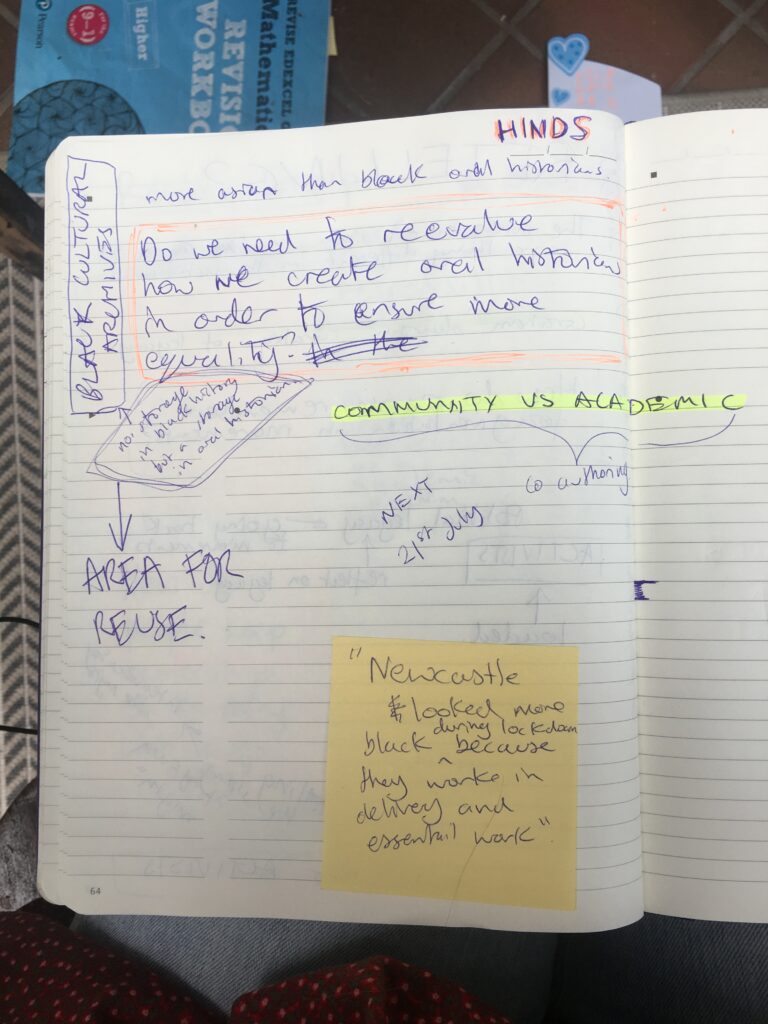 Pearson
(9-1)
Higher
REVISE EDEXCEL
Mathematic
REVISIO
WORKBO
HINDS
more asian than black oral historians.
BLACK CULTURAL
ARCHIVES
Do we need to reevalue
how we create oral historian
in order to ensure more
equality? In the
not storage
in black history
but a storage
in oral historian
COMMUNITY VS ACADEMIC
co authoring
NEXT
21st July
AREA FOR
REUSE.
"Newcastle
looked more
during lockdown
black because
they worke in
delivery and
essentail work".
64